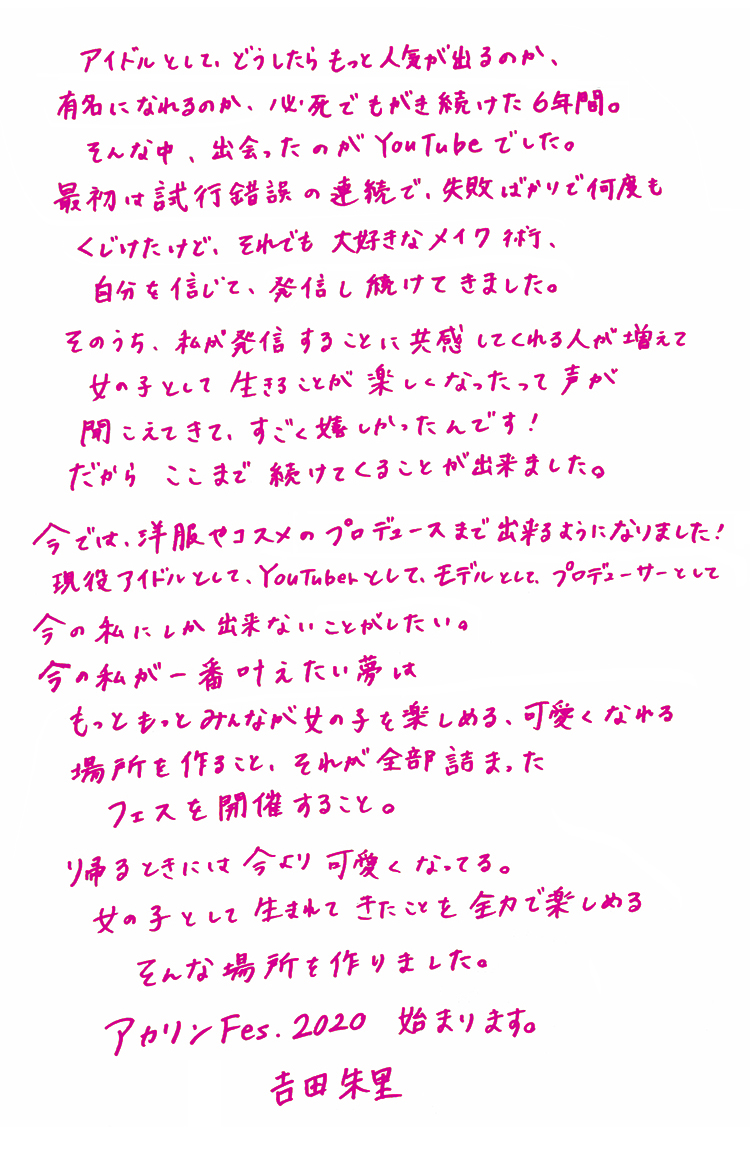 アイドルとして、どうしたらもっと人気が出るのか、
有名になれるのか、必死でもがき続けた6年間。
そんな中、出会ったのがYouTubeでした。
最初は試行錯誤の連続で、失敗ばかりで何度も
くじけたけど、それでも大好きなメイク術、
自分を信じて、発信し続けてきました。
そのうち、私が発信することに共感してくれる人が増えて
女の子として生きることが楽しくなったって声が
聞こえてきて、すごく嬉しかったんです!
だから ここまで続けてくることが出来ました。
今では、洋服やコスメのプロデュースまで出来るようになりました!
現役アイドルとして、YouTuberとして、モデルとして、プロデューサーとして
今の私にしか出来ないことがしたい。
今の私が一番叶えたい夢は
もっともっとみんなが女の子を楽しめる、可愛くなれる
場所を作ること、それが全部詰まった
フェスを開催すること。
帰るときには今より可愛くなってる。
女の子として生まれてきたことを全力で楽しめる
そんな場所を作りました。
アカリンFes.2020 始まります。
吉田朱里